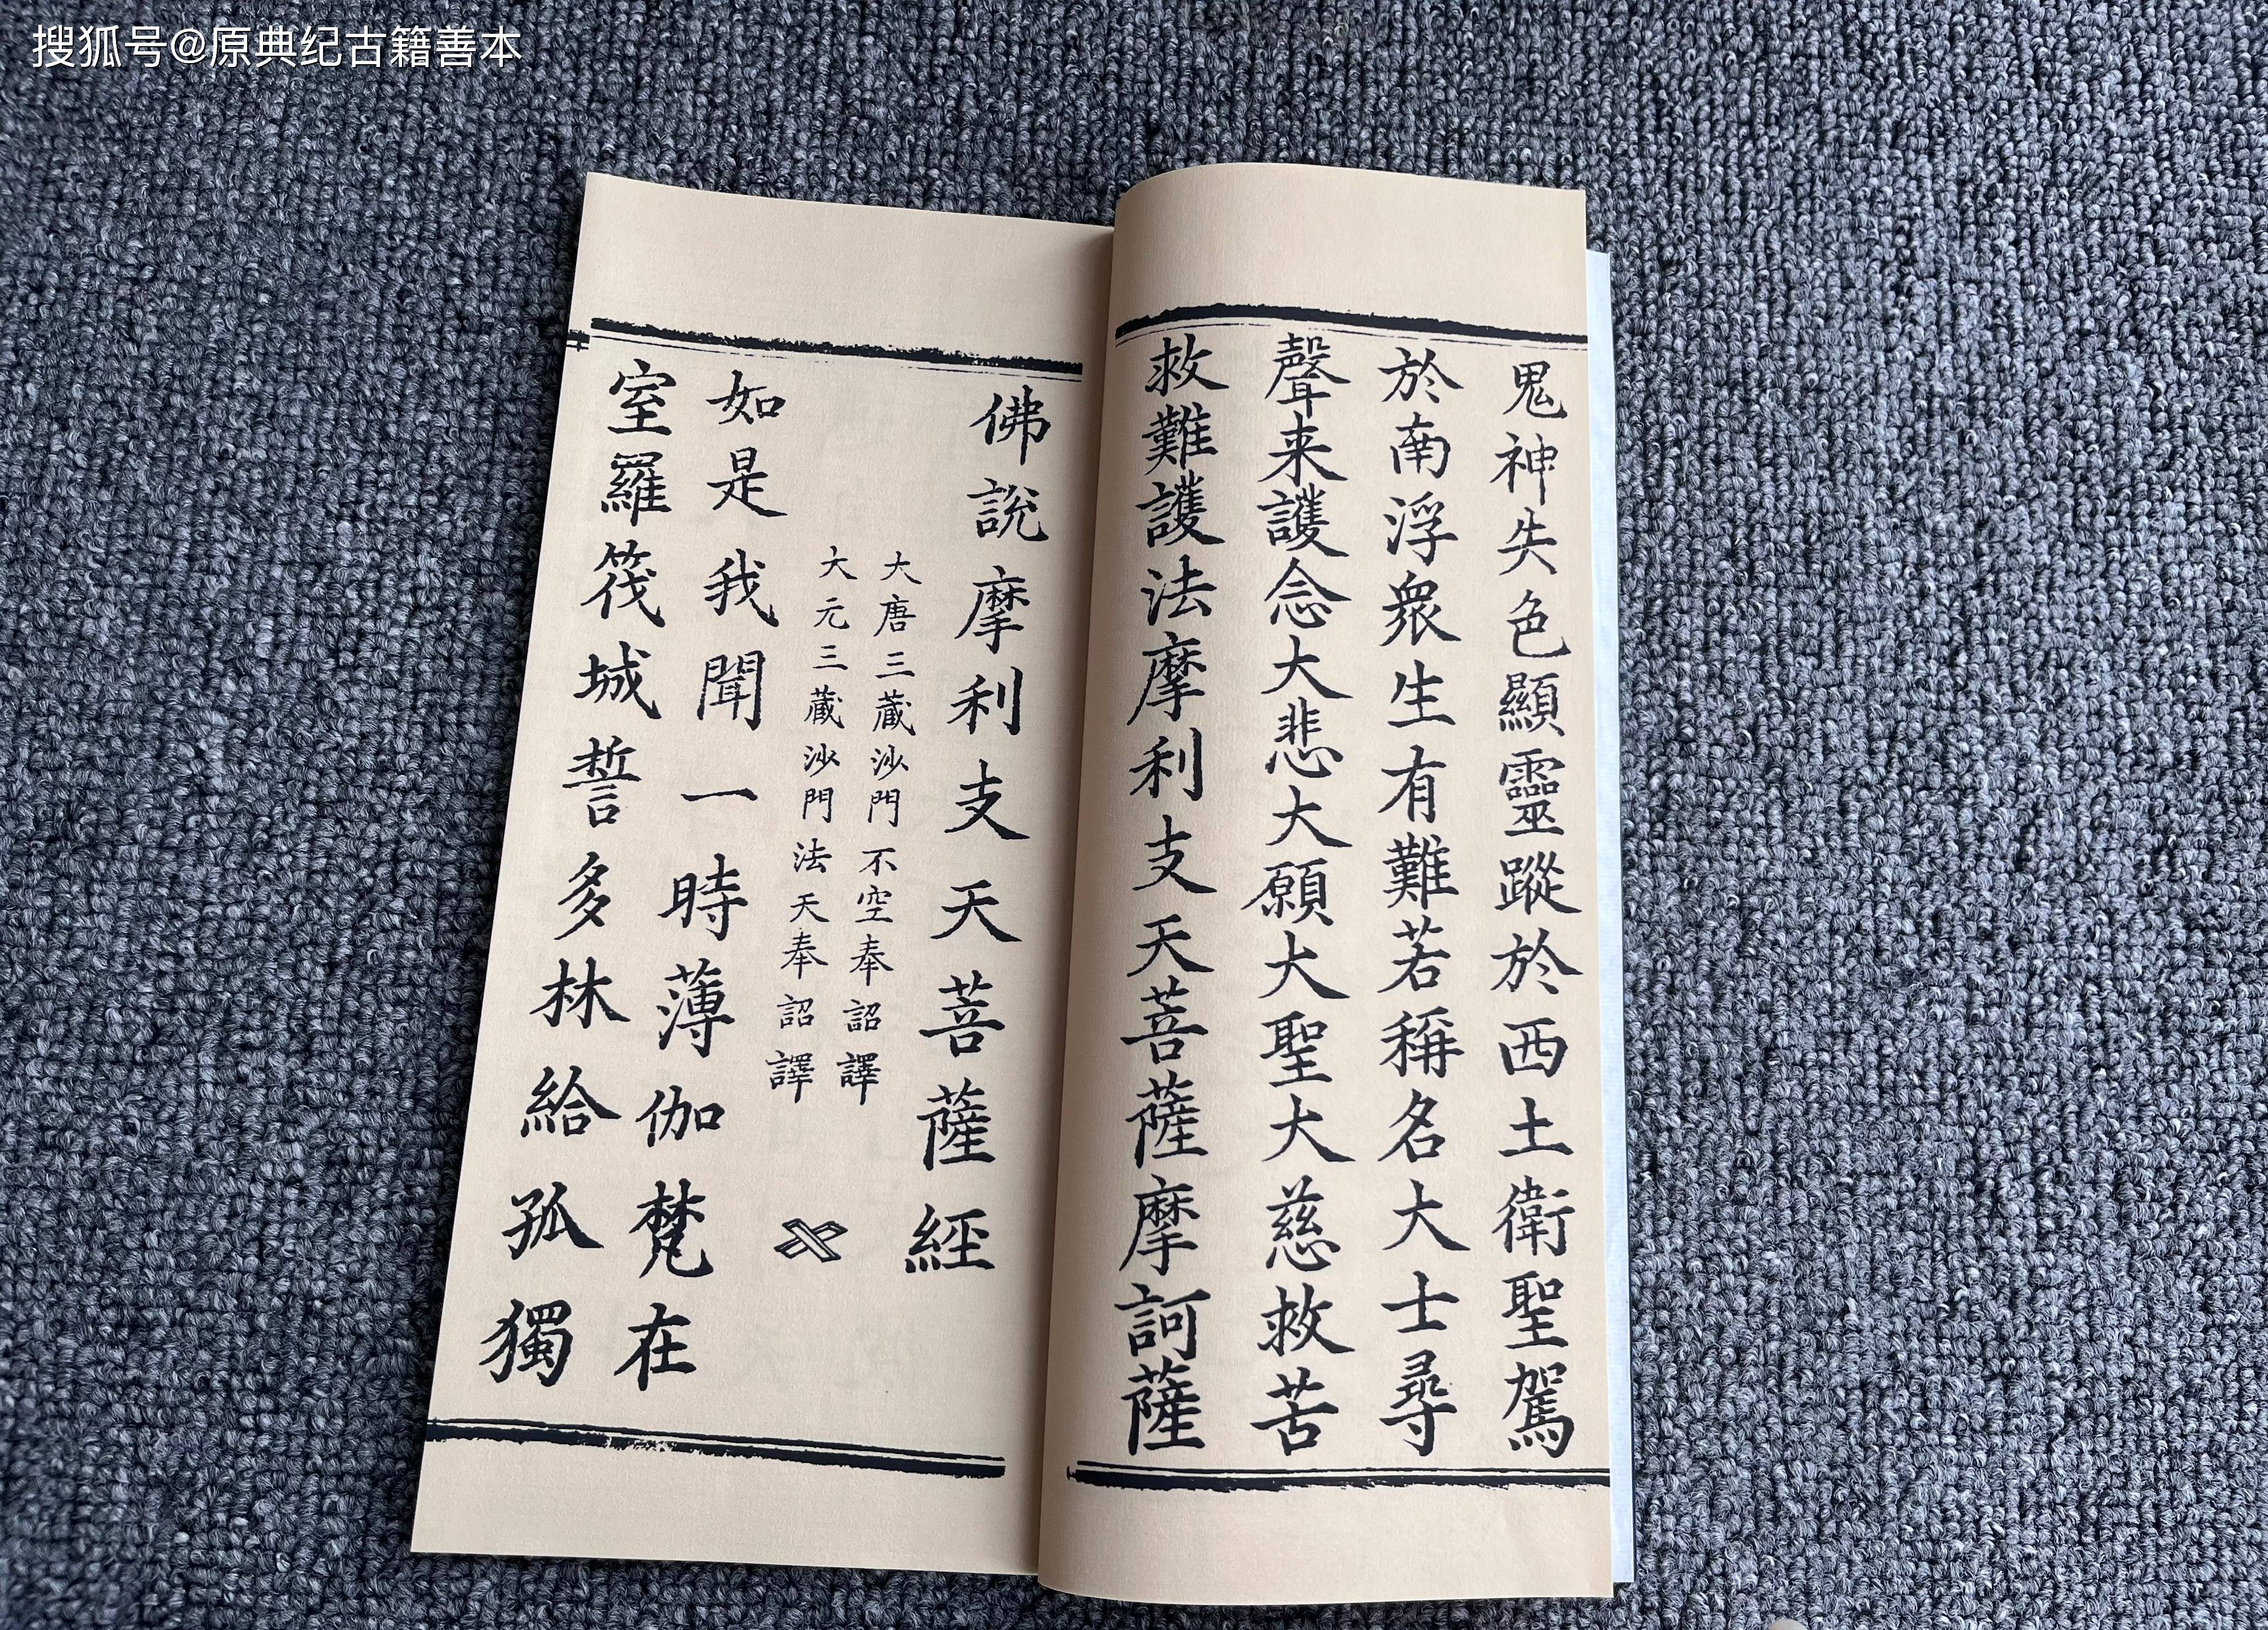 搜狐号@原典纪古籍善本
鬼神失色顯靈蹤於西土衛聖駕
於南浮眾生有難若稱名大士尋
聲来護念大悲大願大聖大慈救苦
救難護法摩利支天菩薩摩訶薩
佛說摩利支天菩薩經
大唐三藏沙門不空奉詔譯
大元三藏沙門法天奉詔譯
如是我聞一時薄伽梵在
室羅筏城誓多林給孤獨